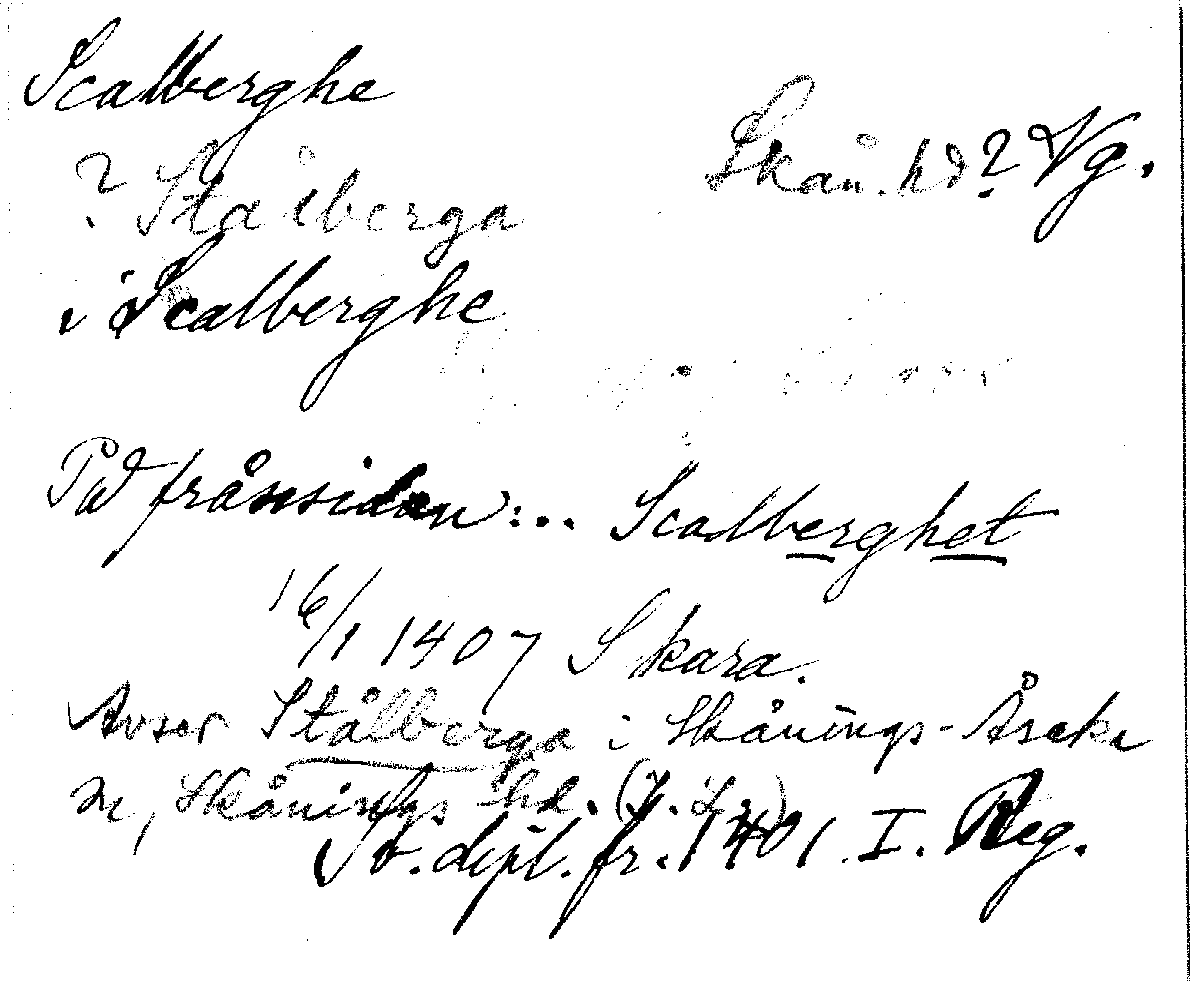 Scalberghe
Skån. hd? Vg.
? Stålberga
i Scalberghe
På frånsidan: .. Scalberghet
16/1 1407 Skara.
Avser Stålberga i Skånings-Åsaka
sn, Skånings hd.
Sv. dipl. fr. 1401 I. Reg.